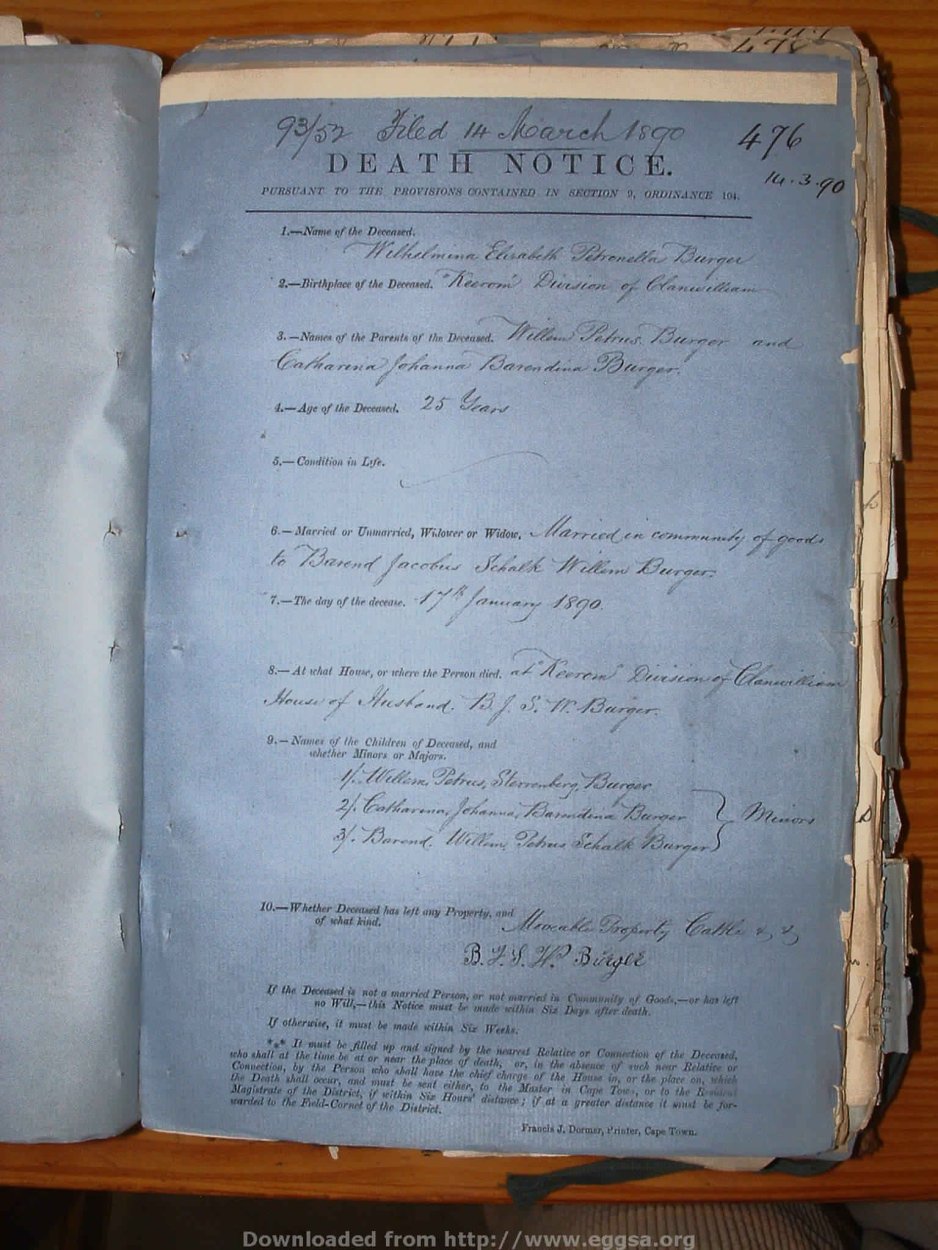 478
93/52 Filed 14 March 1890
476
DEATH NOTICE.
14.3.90
PURSUANT TO THE PROVISIONS CONTAINED IN SECTION 9, ORDINANCE 104.
1.—Name of the Deceased.
Wilhelmina Elizabeth Petronella Burger
2.—Birthplace of the Deceased. "Keerom" Division of Clanwilliam
3.—Names of the Parents of the Deceased. Willem Petrus Burger and
Catharina Johanna Barendina Burger.
4.—Age of the Deceased. 25 Years
5.—Condition in Life.
6.—Married or Unmarried, Widower or Widow, Married in community of goods
to Barend Jacobus Schalk Willem Burger.
7.—The day of the decease. 17th January 1890.
8.—At what House, or where the Person died. at "Keerom" Division of Clanwilliam
House of Husband. B. J. S. W. Burger.
9.—Names of the Children of Deceased, and
whether Minors or Majors.
1/. Willem, Petrus, Sterrenberg, Burger
2/. Catharina, Johanna, Barendina Burger } Minors
3/. Barend, Willem, Petrus Schalk Burger
10.—Whether Deceased has left any Property, and
of what kind. Moveable Property Cattle & &
B. J. S. W. Burger
If the Deceased is not a married Person, or not married in Community of Goods,—or has left
no Will,—this Notice must be made within Six Days after death.
If otherwise, it must be made within Six Weeks.
*** It must be filled up and signed by the nearest Relative or Connection of the Deceased,
who shall at the time be at or near the place of death, or, in the absence of such near Relative or
Connection, by the Person who shall have the chief charge of the House in, or the place on, which
the Death shall occur, and must be sent either, to the Master in Cape Town, or to the Resident
Magistrate of the District, if within Six Hours' distance; if at a greater distance it must be for-
warded to the Field-Cornet of the District.
Francis J. Dormer, Printer, Cape Town.
Downloaded from http://www.eggsa.org